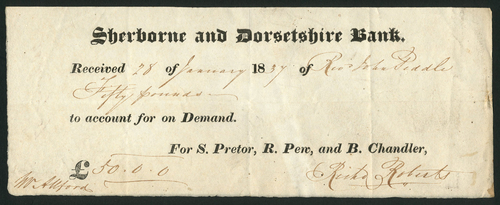 Sherborne and Dorsetshire Bank.
Received 28 of January 1837 of Revd John Piddle
Fifty pounds
to account for on Demand.
For S. Pretor, R. Pew, and B. Chandler,
£50.0.0
Richd Roberts
W. Allford